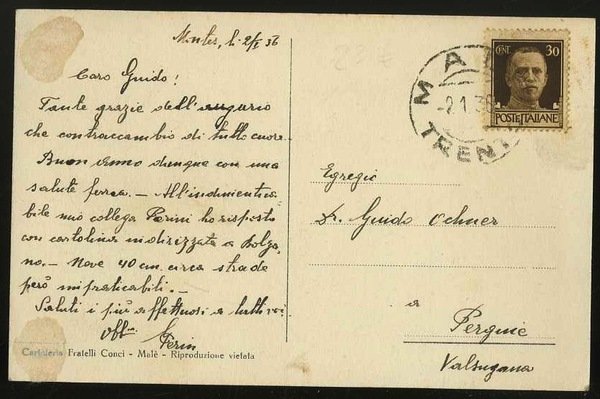 li 2/I 36
Caro Guido!
Tante grazie dell'augurio
che contraccambio di tutto cuore.
Buon anno dunque con una
salute ferrea. — All'indimentica
bile mio collega Parini ho risposto
con cartolina indirizzata a Bolza
no. — Neve 40 cm. circa strade
però impraticabili. —
Saluti i più affettuosi a tutti voi
Aff.
Cartoleria Fratelli Conci - Malè - Riproduzione vietata
CENT. 30
POSTE ITALIANE
MAL
-2.1.36
TRENT
Egregio
Dr. Guido Ochner
a
Pergine
Valsugana